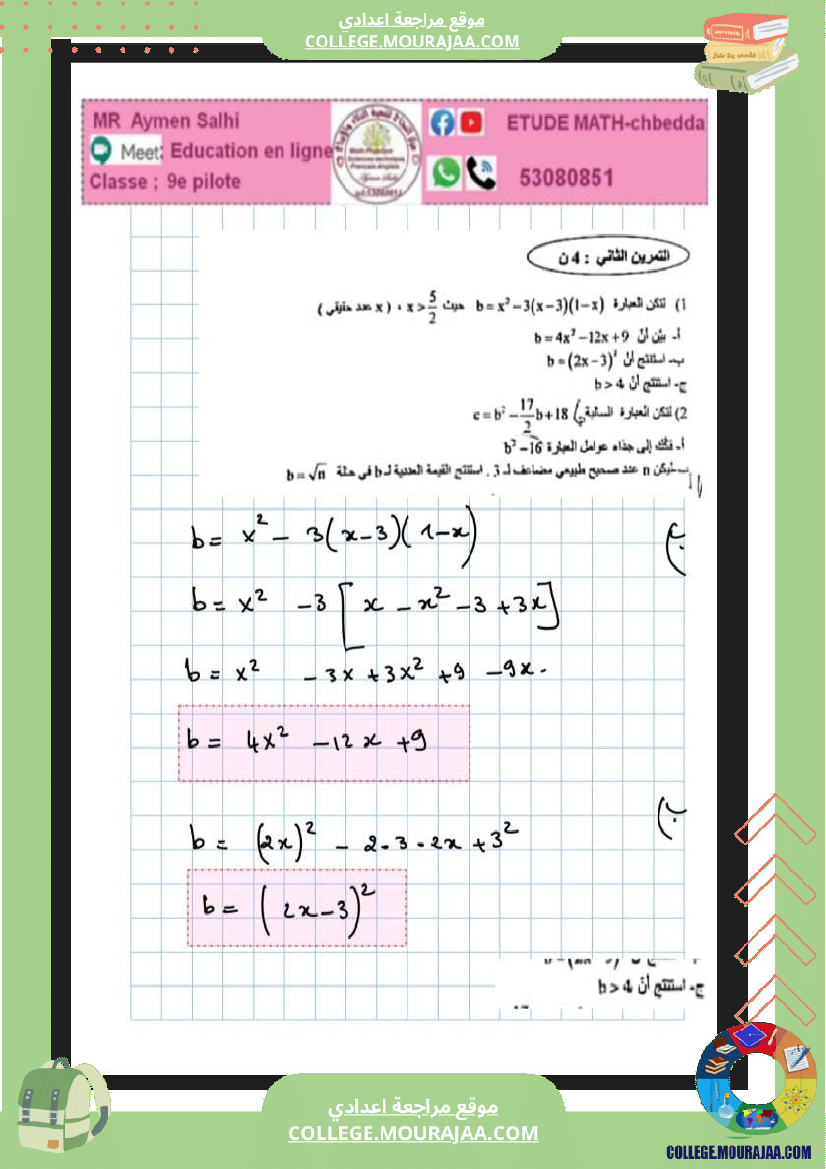 موقع مراجعة اعدادي
COLLEGE.MOURAJAA.COM
MR Aymen Salhi
Meet: Education en ligne
Classe ; 9e pilote
ETUDE MATH-chbedda
53080851
التمرين الثاني : 4 ن
1) لتكن العبارة b = x² − 3(x−3)(1−x) حيث x > 5/2 ، ( x عدد حقيقي )
أ- بيّن أنّ b = 4x² −12x + 9
ب- استنتج أنّ b = (2x − 3)²
ج- استنتج أنّ b > 4
2) لتكن العبارة التالية c = b² − 17/2 b + 18
أ- فكّك إلى جذاء عوامل العبارة b² − 16
ب- ليكن n عدد صحيح طبيعي مضاعف لـ 3 . استنتج القيمة العددية لـ b في حالة b = √n
b = x² − 3(x−3)(1−x)
b = x² −3 [x − x² − 3 + 3x]
b = x² − 3x + 3x² + 9 − 9x.
b = 4x² − 12x + 9
ب)
b = (2x)² − 2·3·2x + 3²
b = (2x−3)²
ج- استنتج أنّ b > 4
موقع مراجعة اعدادي
COLLEGE.MOURAJAA.COM
COLLEGE.MOURAJAA.COM